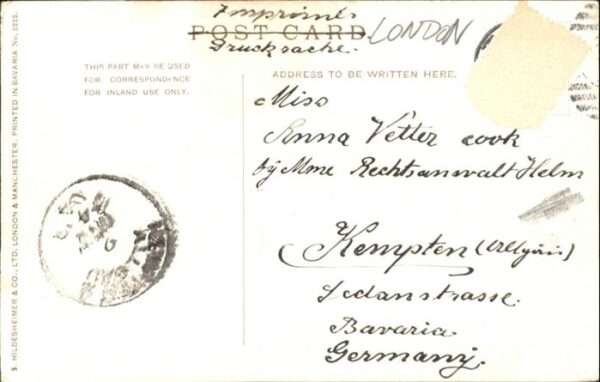 Imprimés
POST CARD
Drucksache.
LONDON
THIS PART MAY BE USED
FOR CORRESPONDENCE
FOR INLAND USE ONLY.
ADDRESS TO BE WRITTEN HERE.
Miss
Anna Vetter cook
by Mme Rechtsanwalt Helm
Kempten (Allgäu)
Sedanstrasse.
Bavaria.
Germany.
S. HILDESHEIMER & CO., LTD. LONDON & MANCHESTER. PRINTED IN BAVARIA No.